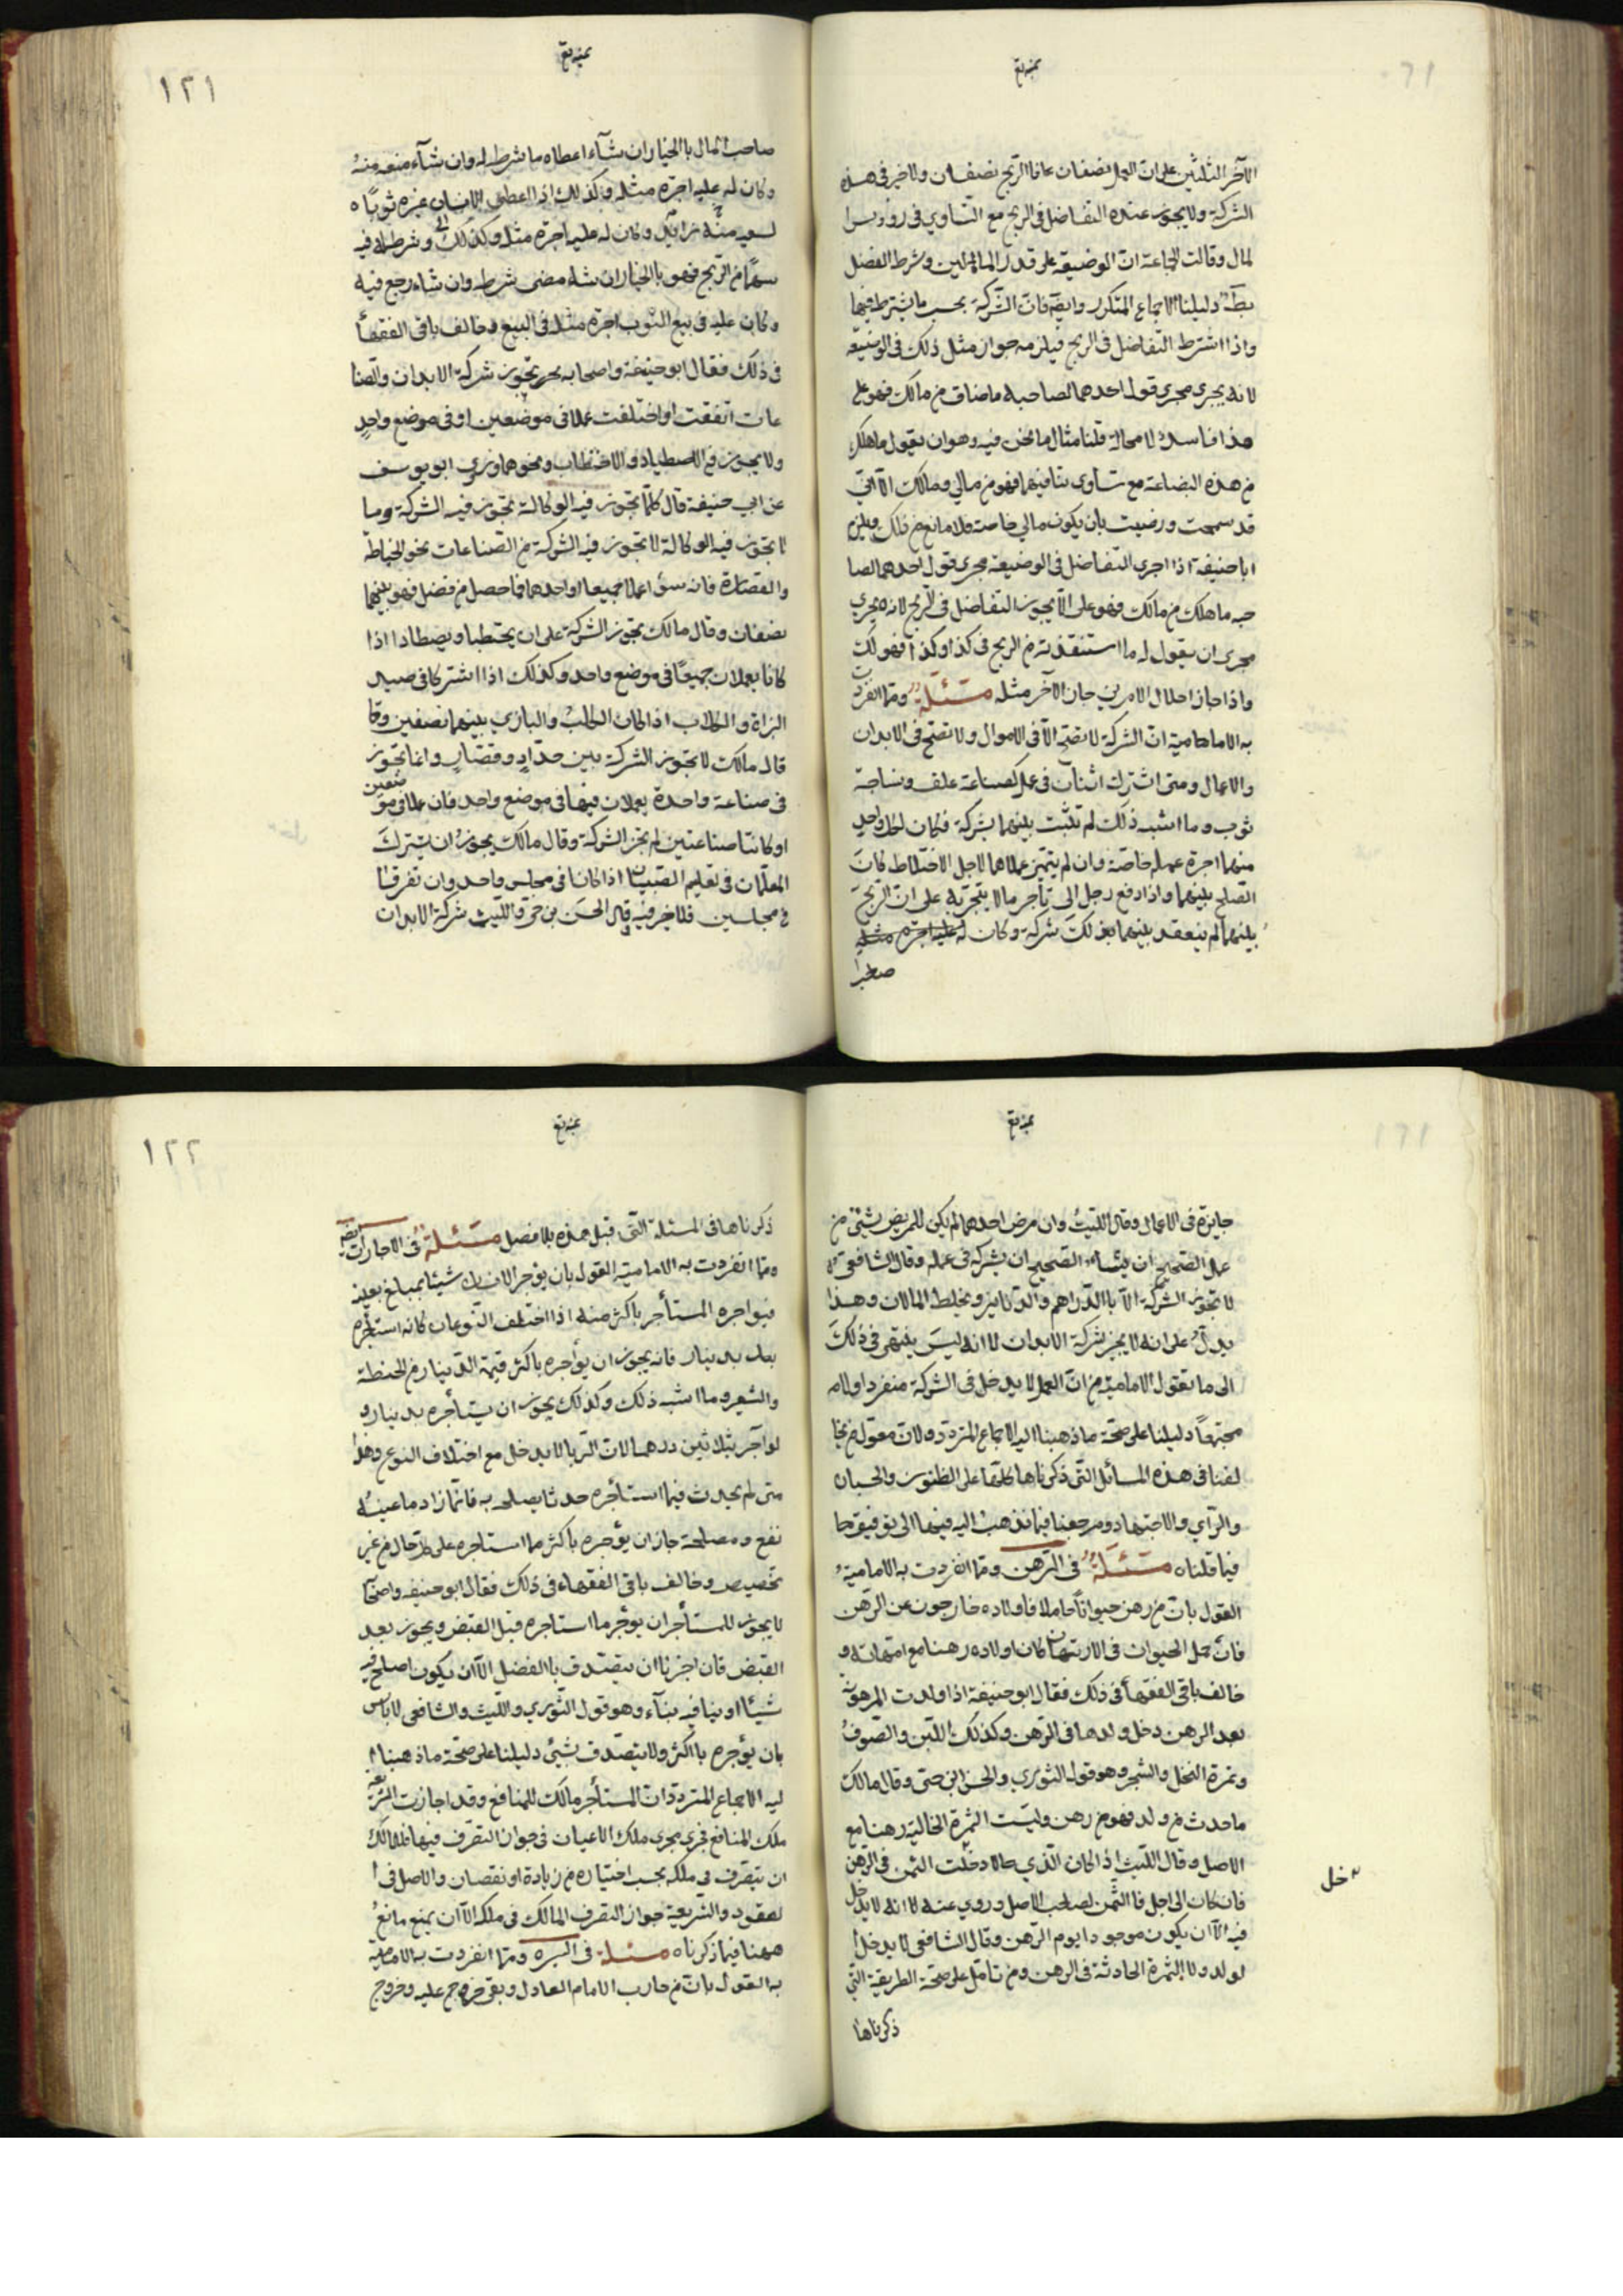 الآخر الثلثين على ان العمل نصفان فانما الربح نصفان ولا خير في هذه
الشركة ولا يجوز عنده التفاضل في الربح مع التساوي في روؤس ا
لمال وقالت الجماعة ان الوضيعة على قدر المالين وشرط الفضل
دليلنا الاجماع المتكرر وايضا فان الشركة بحسب ما يشترط فيها
واذا اشترط التفاضل في الربح فيلزمه جواز مثل ذلك في الوضيعة
لانه يجرى مجرى قول احدهما لصاحبه ما ضاق من مالك فهو على
هذا فاسد لا محالة قلنا مثال ما نحن فيه وهو ان يقول ما هلك
من هذه البضاعة مع تساوى فهو من مالي ومالك الا اني
قد سمحت ورضيت بان يكون مالي خاصة ولا مانع من ذلك ويلزم
ابا حنيفة اذا اجرى التفاضل في الوضيعة مجرى قول احدهما لصا
حبه ما هلك من مالك فهو على الا يجوز التفاضل في الربح لانه يجرى
مجرى ان يقول له ما استنقذته من الربح في كذا وكذا فهو لك
واذا جاز احلال الامرين جاز الآخر مثله مسئلة ومما انفردت
به الامامية ان الشركة لا تصح الا في الاموال ولا تصح في الابدان
والاعمال ومتى اشترك اثنان في عمل كصناعة علف ونساجة
ثوب وما اشبه ذلك لم تثبت بينهما شركة فكان لكل واحد
منهما اجرة عمله خاصة وان لم يتميز عملاهما لاجل الاختلاط كان
الصلح بينهما واذا دفع رجل الى تاجر مالا يتجر به على ان الربح
بينهما لم ينعقد بينهما بذلك شركة وكان له عليه اجرة مثله
١٢١
صاحب المال بالخيار ان شآء اعطاه ما شرطه له وان شآء منعه منه
وكان له عليه اجرة مثله وكذلك اذا اعطى الانسان غيره ثوبا
وكان له عليه اجرة مثله وكذلك وشرط له فيه
سهما من الربح فهو بالخيار ان شاء مضى شرطه وان شاء رجع فيه
وكان عليه في بيع الثوب اجرة مثله في البيع وخالف باقى الفقهآ
في ذلك فقال ابو حنيفة واصحابه تجوز شركة الابدان والصنا
عات اتفقت او اختلفت عملا في موضعين او في موضع واحد
ولا يجوز في الاصطياد والاحتطاب ونحوهما وروى ابو يوسف
عن ابي حنيفة قال كلما تجوز فيه الوكالة تجوز فيه الشركة وما
لا تجوز فيه الوكالة لا تجوز فيه الشركة من الصناعات نحو الخياطة
والقصارة فانه سوآ عملا جميعا او احدهما فما حصل من فضل فهو بينهما
نصفان وقال مالك تجوز الشركة على ان يحتطبا ويصطادا اذا
كانا يعملان جميعا في موضع واحد وكذلك اذا اشتركا في صيد
البزاة والكلاب اذا كان الكلب والبازي بينهما نصفين وقا
قال مالك لا تجوز الشركة بين حداد وقصار وانما تجوز
في صناعة واحدة يعملان فيها في موضع واحد فان عملا في موضعين
او كانتا صناعتين لم تجز الشركة وقال مالك يجوز ان يشترك
المعلمان في تعليم الصبيان اذا كانا في مجلس واحد وان تفرقا
في مجلسين فلا خير فيه قال الحسن بن حى والليث شركة الابدان
جايزة في الاعمال وقال الليث وان مرض احدهما لم يكن للمريض شئ من
عمل الصحيح الا ان يشاء الصحيح ان يشركه في عمله وقال الشافعى
لا تجوز الشركة الا بالدراهم والدنانير ويخلط المالان وهذا
يدل على انه لا يجيز شركة الابدان الا انه ليس ينتهى في ذلك
الى ما يقول الامامية من ان العمل لا يدخل في الشركة منفردا ولا
مجتمعا دليلنا على صحة ما ذهبنا اليه الاجماع المتردد ولان معول مخا
لفنا في هذه المسائل التى ذكرناها كلها على الظنون والحسبان
والرآي والاجتهاد ومرجعنا فيما نذهب اليه فيها الى توقيف
فيما قلناه مسئلة في الرهن ومما انفردت به الامامية
القول بان من رهن حيوانا حاملا فاولاده خارجون عن الرهن
فان حمل الحيوان في الارتهان كان اولاده رهنا مع امهاته و
خالف باقي الفقهآ في ذلك فقال ابو حنيفة اذا ولدت المرهونة
بعد الرهن دخل ولدها في الرهن وكذلك اللبن والصوف
وثمرة النخل والشجر وهو قول الثوري والحسن ابن حى وقال مالك
ما حدث من ولد فهو من رهن وليست الثمرة الخالية رهنا مع
الاصل وقال الليث اذا كان الدين حالا دخلت الثمن في الرهن
فان كان الى اجل فالثمن لصاحب الاصل وروي عنه لا انه لا يدخل
فيه الا ان يكون موجودا يوم الرهن وقال الشافعى لا يدخل ا
لولد ولا الثمرة الحادثة في الرهن ومن تامل على صحة الطريقة التى
ذكرناها
١٢٢
ذكرناها في المسئلة التى قبل هذه بلا فصل مسئلة في الاجارات
ومما انفردت به الامامية القول بان يوجر الانسان شيئا بمبلغ بعينه
فيواجره المستأجر باكثر منه اذا اختلف النوعان كانه استاجره
بدينار فانه يجوز ان يؤاجره باكثر قيمة الدينار من الحنطة
والشعير وما اشبه ذلك وكذلك يجوز ان يستأجره بدينار و
لو آجر بثلاثين درهما لان الربا لا يدخل مع اختلاف النوع وهذا
متى لم يحدث فيما استأجره حدثا يصلحه به فانما زاد ما عينه
نفع ومصلحة جاز ان يؤجره باكثر مما استاجره على كل حال من غير
تخصيص وخالف باقي الفقهاء في ذلك فقال ابو حنيفه واصحآ
لا يجوز للمستأجر ان يوجر ما استاجره قبل القبض ويجوز بعد
القبض فان اجرنا ان يتصدق بالفضل الا ان يكون اصلح فيه
شيئا او بنا فيه بنآء وهو قول الثوري والليث والشافعى لا باس
بان يؤجره باكثر ولا يتصدق بشئ دليلنا على صحة ما ذهبنا ا
ليه الاجماع المتردد ان المستأجر مالك للمنافع وقد اجازت الشريعة
ملك المنافع فجرى مجرى ملك الاعيان في جواز التصرف فيها فللمالك
ان يتصرف في ملكه بحسب اختياره من زيادة او نقصان والاصل في ا
لعقود والشريعة جواز التصرف المالك في ملكه الا ان يمنع مانع
ههنا فيما ذكرناه مسئلة في السيره ومما انفردت به الامامية
به القول بان من حارب الامام العادل وبغى خروج عليه وخروج